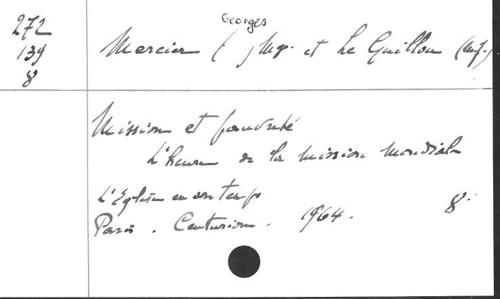 Georges
272 Mercier ( ) Mgr. et Le Guillou (M.J.)
139
8
Mission et pauvreté
L'heure de la mission mondiale
L'Eglise en son temps
Paris. Centurion. 1964. 8°